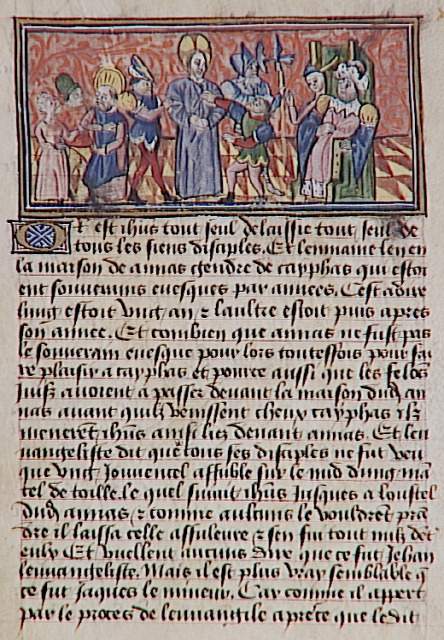 Or est ihus tout seul delaissie tout seul de
tous les siens disciples. Et lenmaine len en
la maison de annas gendre de cayphas qui estoi
ent souverains evesques par annees. Cest a dire
lung estoit ung an & laultre estoit puis apres
son annee. Et combien que annas ne fust pas
le souverain evesque pour lors touteffois pour fai
re plaisir a cayphas et pource aussi que les felos
juifz avoient a passer devant la maison dud an
nas avant quilz venissent cheux cayphas ilz
menerent ihus ainsi liez devant annas. Et leu
vangeliste dit que tous ses disciples ne fut veu
que ung jouvencel affuble sur le nud dung man
tel de toille. le quel suivit ihus jusques a loustel
dud annas, & comme aulcuns le vouldrent pren
dre il laissa celle affuleure & sen fui tout nuz det
eulx Et veullent aucuns dire que ce fut Jehan
levangeliste. Mais il est plus vray semblable q
ce fut Jaques le mineur. Car comme il appert
par le proces de leuvangile apres ce que ledit